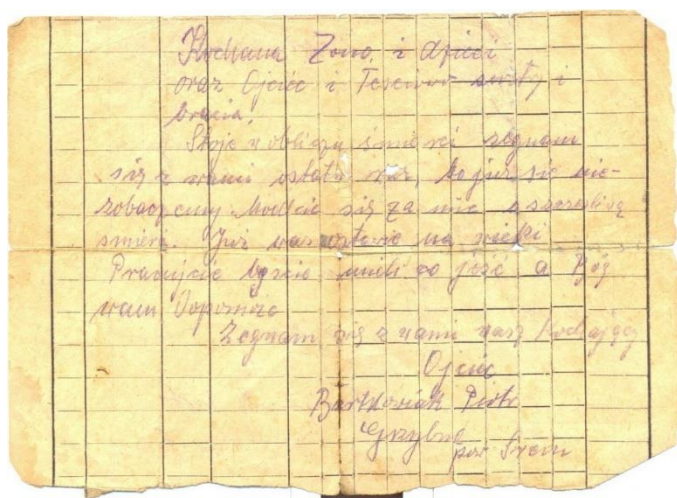 Kochana Żono, i dzieci
oraz Ojcze i Teściowo siostry i
bracia.
Stoje w obliczu śmierci żegnam
się z wami ostatni raz, bo już się nie-
zobaczemy. Modlcie się za mnie o szczęśliwą
śmierć. Już was zostawie na wieki
Pracujcie byście mieli co jeść a Bóg
wam Dopomoże
Żegnam się z wami wasz kochający
Ojciec
Bartkowiak Piotr
Grzybno
pow Śrem